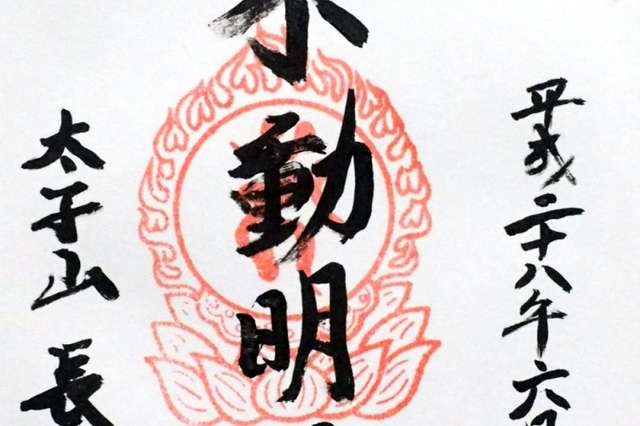 平成二十八年六月
不動明
太子山 長